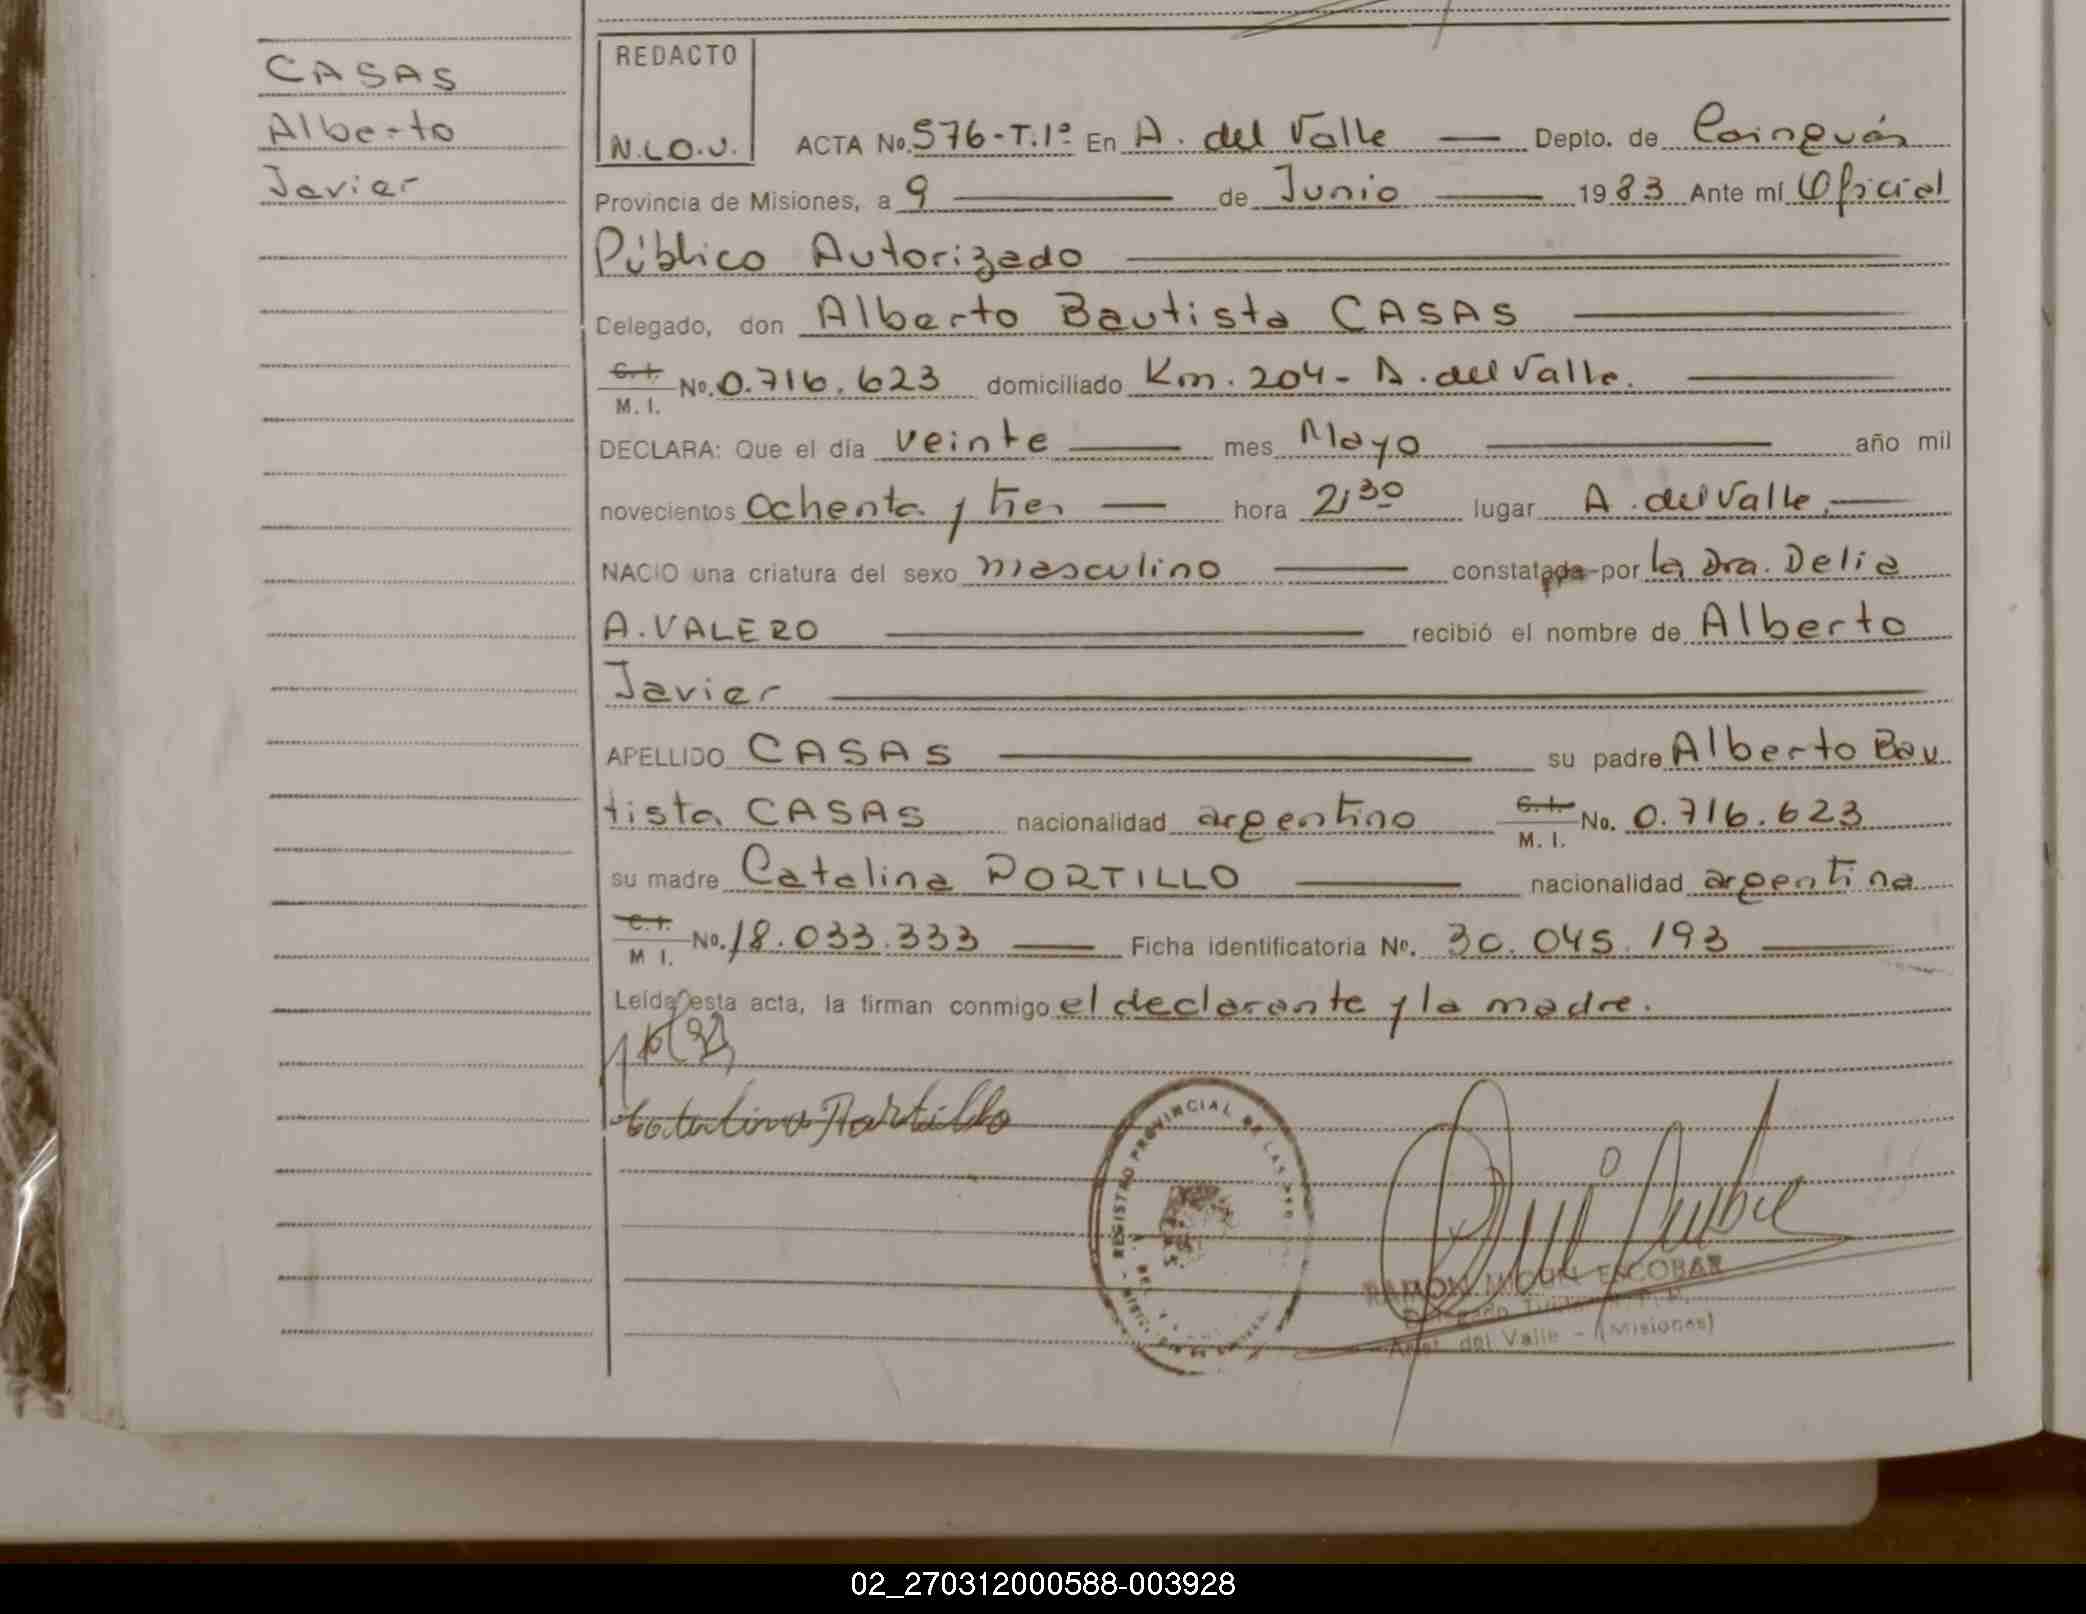 CASAS
Alberto
Javier
REDACTO
N.L.O.V.
ACTA No. 576-T.1º En A. del Valle Depto. de Cainguás
Provincia de Misiones, a 9 de Junio 1983 Ante mí Oficial
Público Autorizado
Celegado, don Alberto Bautista CASAS
C.I. M. I. No. 0.716.623 domiciliado Km. 204- A. del Valle.
DECLARA: Que el día veinte mes Mayo año mil
novecientos ochenta y tres hora 2,30 lugar A. del Valle,
NACIO una criatura del sexo masculino constatada por la Dra. Delia
A. VALERO recibió el nombre de Alberto
Javier
APELLIDO CASAS su padre Alberto Bau
tista CASAS nacionalidad argentino C.I. M. I. No. 0.716.623
su madre Catalina PORTILLO nacionalidad argentina
C.I. M I. No. 18.033.333 Ficha identificatoria Nº. 30.045.193
Leída esta acta, la firman conmigo el declarante y la madre.
Catalina Portillo
REGISTRO PROVINCIAL DE LAS
RAMÓN MIGUEL ESCOBAR
del Valle - (Misiones)
02_270312000588-003928